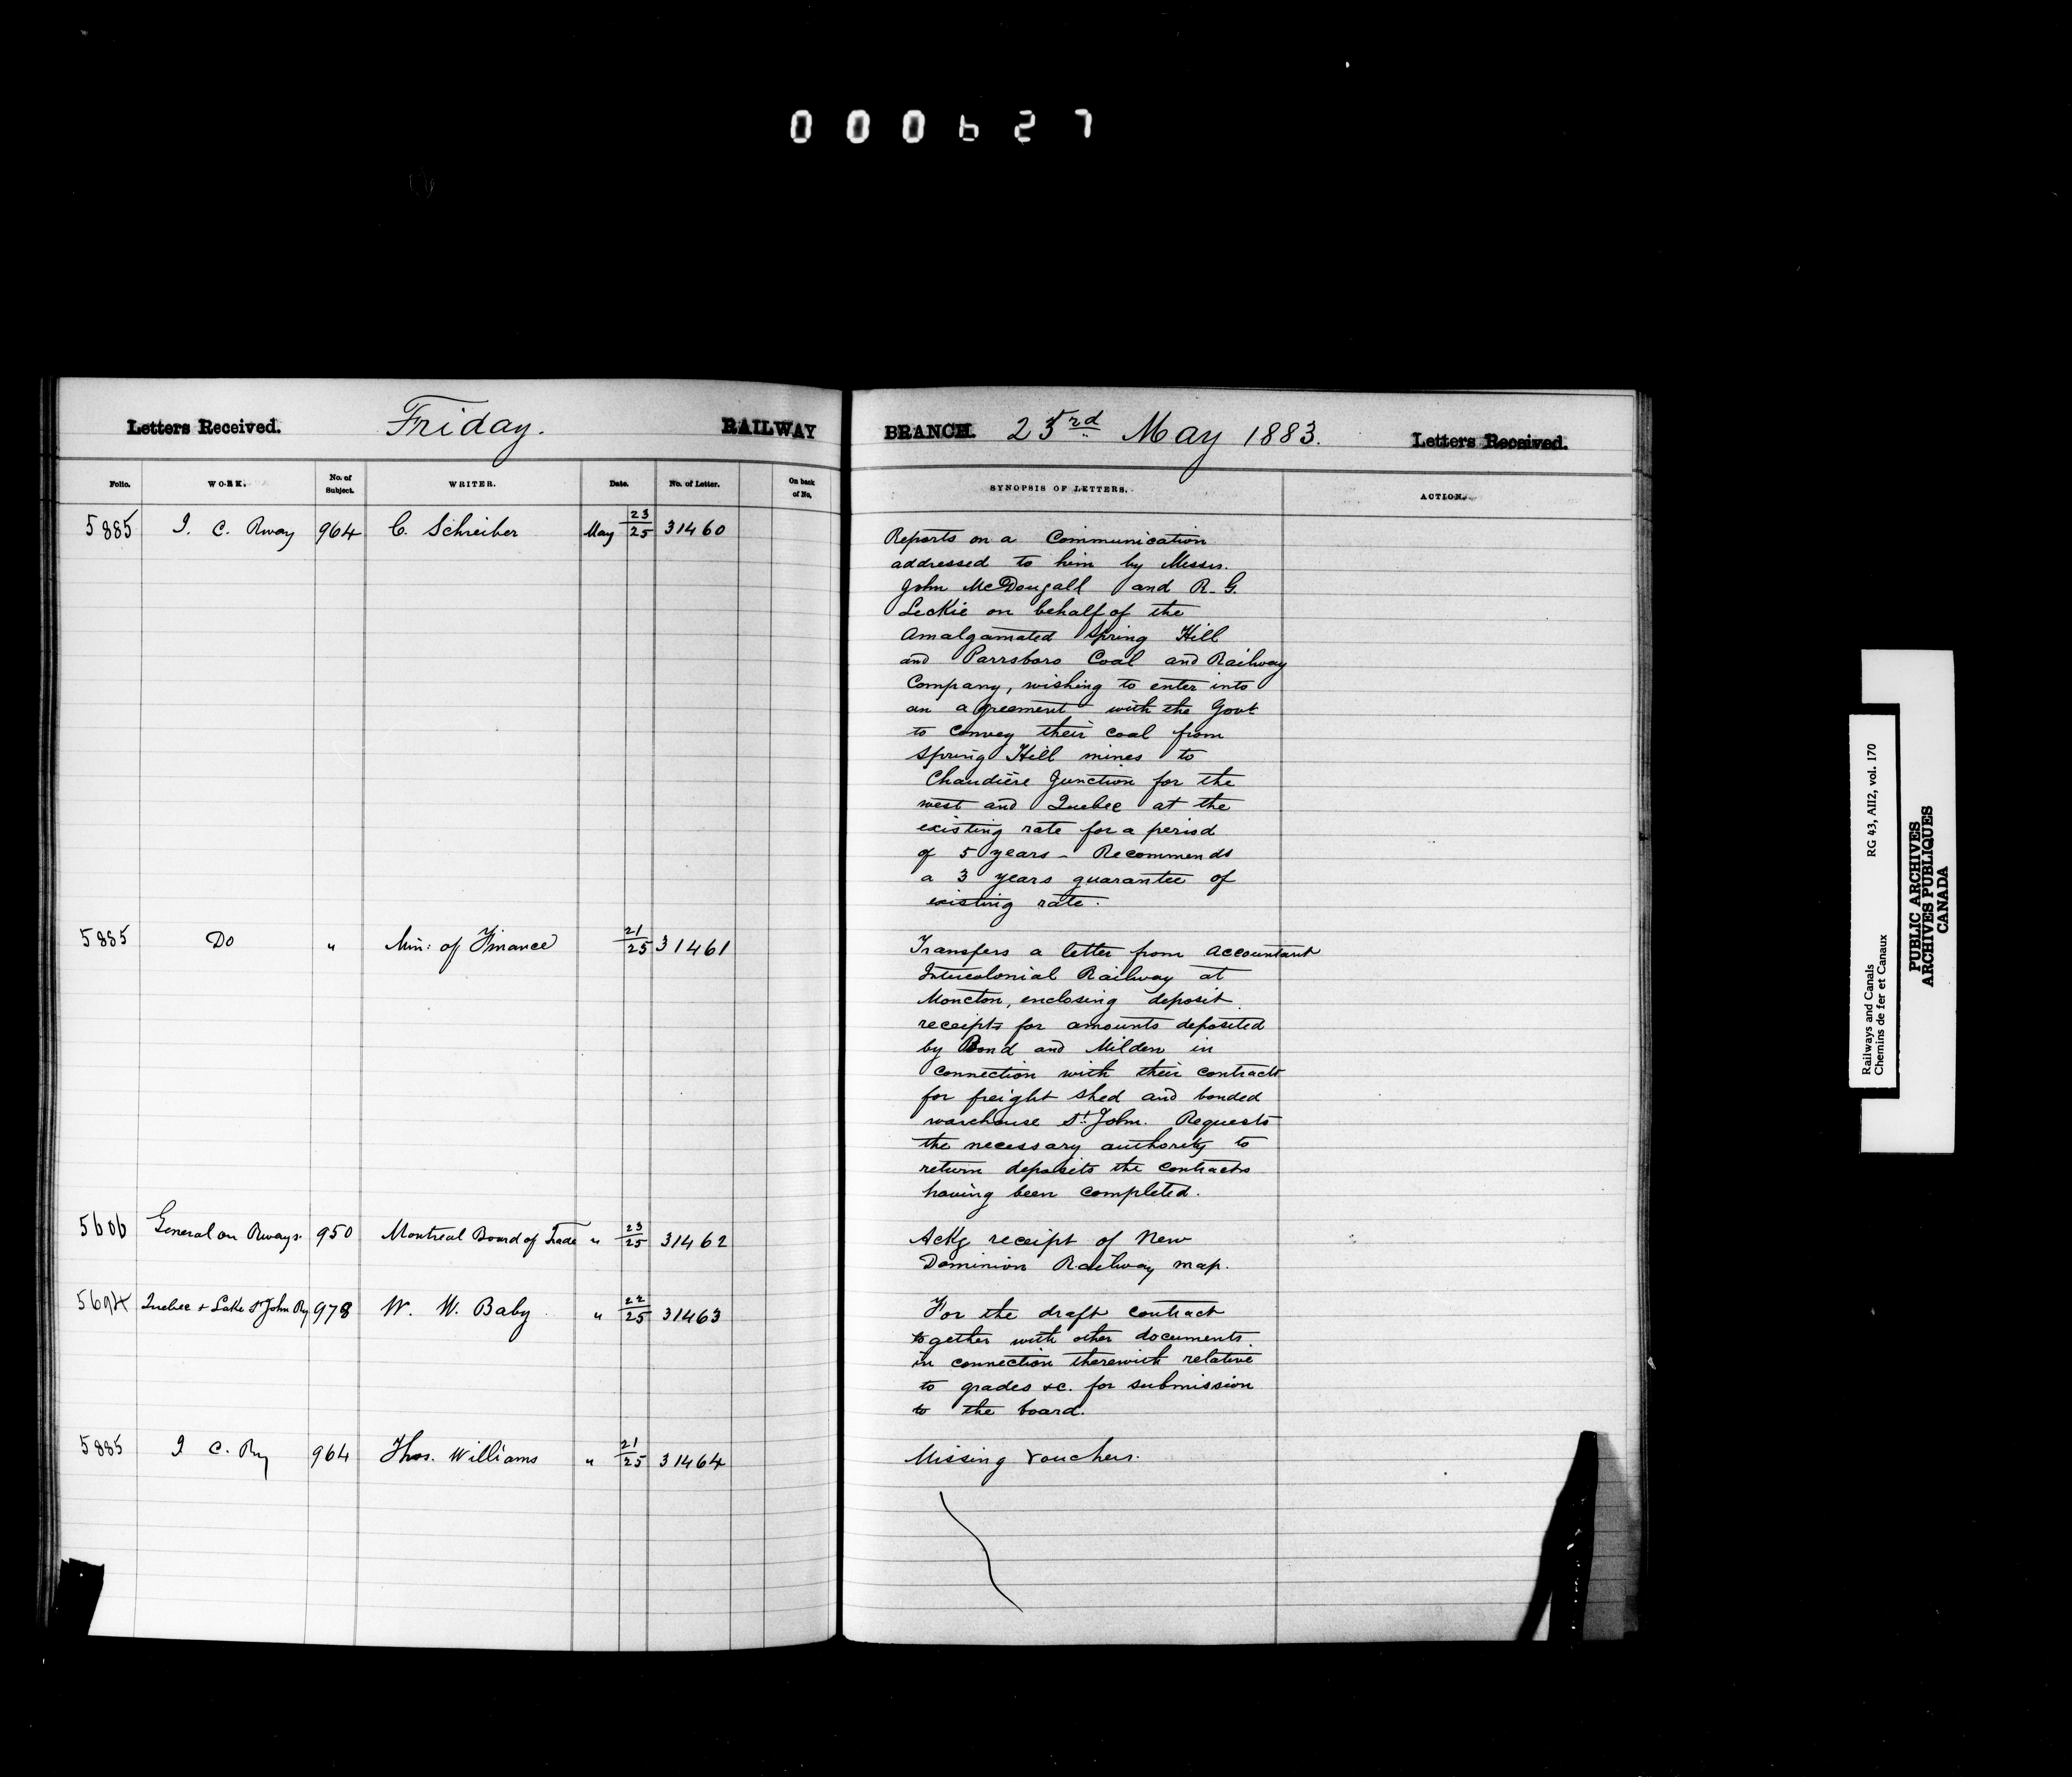 000627
Letters Received. Friday. RAILWAY
Folio. WORK. No. of Subject. WRITER. Date. No. of Letter. On back of No.
5885 I. C. Rway 964 C. Schreiber May 23/25 31460
5885 Do " Min: of Finance 21/25 31461
5606 General on Rways. 950 Montreal Board of Trade " 23/25 31462
Quebec & Lake St John Ry 978 W. W. Baby " 22/25 31463
5885 I C. Ry 964 Thos. Williams " 21/25 31464
BRANCH. 25rd May 1883. Letters Received.
SYNOPSIS OF LETTERS. ACTION.
Reports on a Communication
addressed to him by Messrs.
John McDougall and R. G.
Leckie on behalf of the
Amalgamated Spring Hill
and Parrsboro Coal and Railway
Company, wishing to enter into
an agreement with the Govt
to convey their coal from
Spring Hill mines to
Chaudière Junction for the
west and Quebec at the
existing rate for a period
of 5 years - Recommends
a 3 years guarantee of
existing rate.
Transfers a letter from Accountant
Intercolonial Railway at
Moncton, enclosing deposit
receipts for amounts deposited
by Bond and Milden in
connection with their contracts
for freight shed and bonded
warehouse St. John. Requests
the necessary authority to
return deposits the contracts
having been completed.
Ackg receipt of New
Dominion Railway map.
For the draft contract
together with other documents
in connection therewith relative
to grades &c. for submission
to the board.
Missing vouchers.
Railways and Canals RG 43, AII2, vol. 170
Chemins de fer et Canaux
PUBLIC ARCHIVES
ARCHIVES PUBLIQUES
CANADA